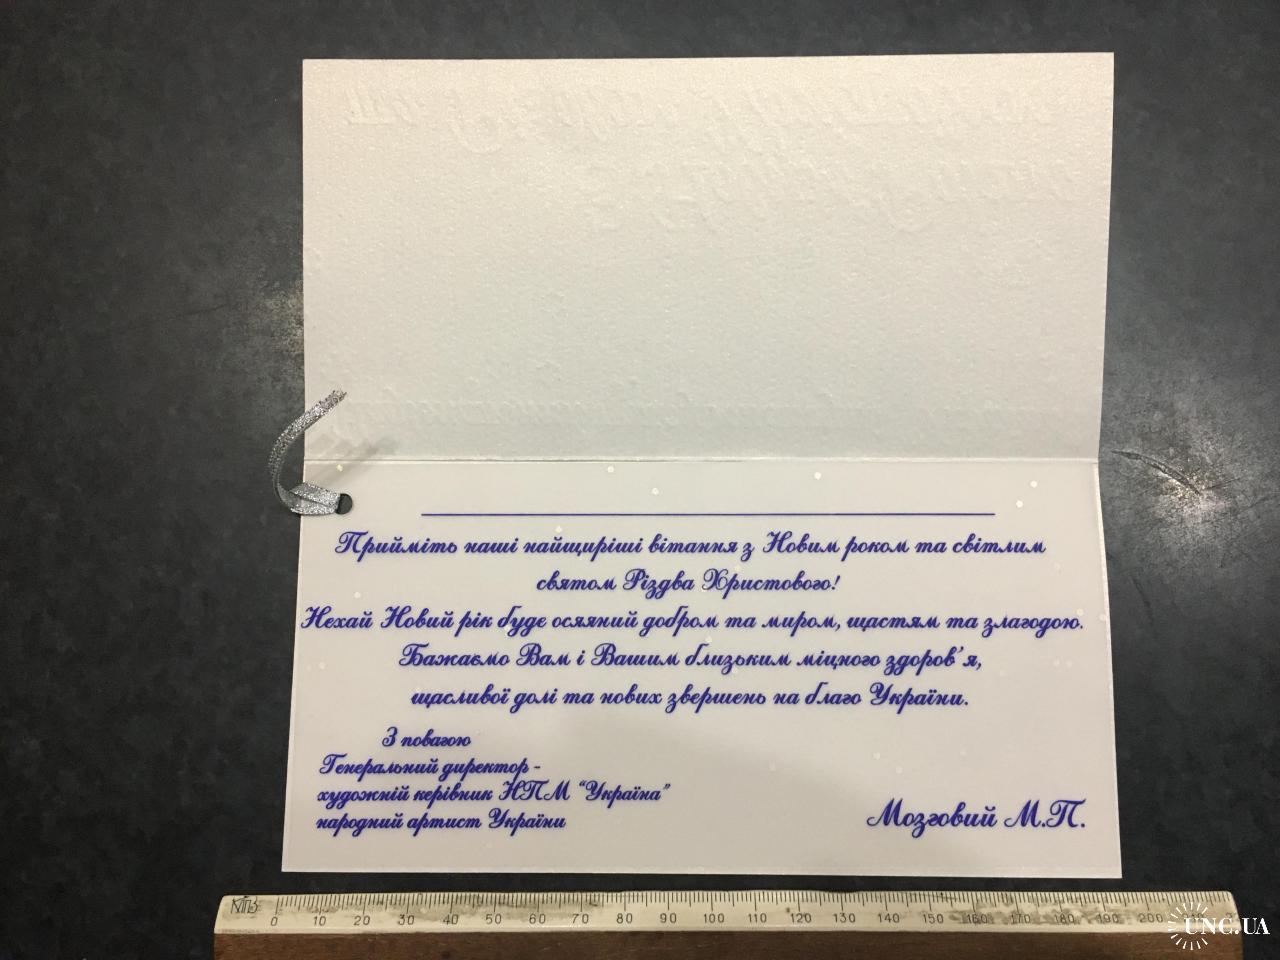 Прийміть наші найщиріші вітання з Новим роком та світлим
святом Різдва Христового!
Нехай Новий рік буде осяяний добром та миром, щастям та злагодою.
Бажаємо Вам і Вашим близьким міцного здоров'я,
щасливої долі та нових звершень на благо України.
З повагою
Генеральний директор -
художній керівник НПМ “Україна”
народний артист України
Мозговий М.П.
0 10 20 30 40 50 60 70 80 90 100 110 120 130 140 150 160 170 180 190 200
UNC.UA